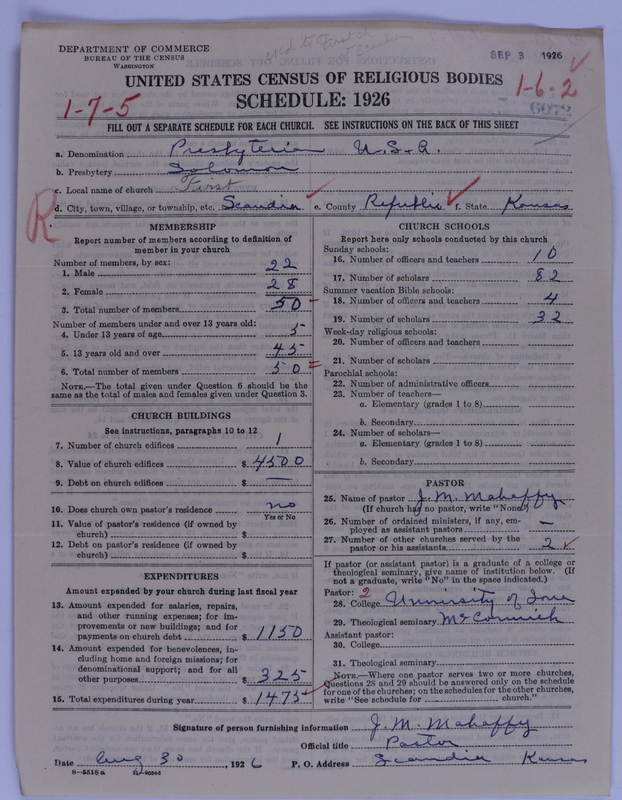 DEPARTMENT OF COMMERCE
BUREAU OF THE CENSUS
WASHINGTON
SEP 3 1926
UNITED STATES CENSUS OF RELIGIOUS BODIES
SCHEDULE: 1926
1-7-5
1-6-2
6072
FILL OUT A SEPARATE SCHEDULE FOR EACH CHURCH. SEE INSTRUCTIONS ON THE BACK OF THIS SHEET
a. Denomination Presbyterian U.S.A.
b. Presbytery Solomon
c. Local name of church First
d. City, town, village, or township, etc. Scandia e. County Republic f. State Kansas
R
MEMBERSHIP
Report number of members according to definition of
member in your church
Number of members, by sex:
1. Male 22
2. Female 28
3. Total number of members 50
Number of members under and over 13 years old:
4. Under 13 years of age 5
5. 13 years old and over 45
6. Total number of members 50
NOTE.—The total given under Question 6 should be
same as the total of males and females given under Question 3.
CHURCH BUILDINGS
See instructions, paragraphs 10 to 12
7. Number of church edifices 1
8. Value of church edifices $ 4500
9. Debt on church edifices $ —
10. Does church own pastor's residence no
Yes or No
11. Value of pastor's residence (if owned by
church) $
12. Debt on pastor's residence (if owned by
church) $
EXPENDITURES
Amount expended by your church during last fiscal year
13. Amount expended for salaries, repairs,
and other running expenses; for im-
provements or new buildings; and for
payments on church debt $ 1150
14. Amount expended for benevolences, in-
cluding home and foreign missions; for
denominational support; and for all
other purposes $ 325
15. Total expenditures during year $ 1475
CHURCH SCHOOLS
Report here only schools conducted by this church
Sunday schools:
16. Number of officers and teachers 10
17. Number of scholars 82
Summer vacation Bible schools:
18. Number of officers and teachers 4
19. Number of scholars 32
Week-day religious schools:
20. Number of officers and teachers
21. Number of scholars
Parochial schools:
22. Number of administrative officers
23. Number of teachers—
a. Elementary (grades 1 to 8)
b. Secondary
24. Number of scholars—
a. Elementary (grades 1 to 8)
b. Secondary
PASTOR
25. Name of pastor J. M. Mahaffy
(If church has no pastor, write "None")
26. Number of ordained ministers, if any, em-
ployed as assistant pastors —
27. Number of other churches served by the
pastor or his assistants 2
If pastor (or assistant pastor) is a graduate of a college or
theological seminary, give name of institution below. (If
not a graduate, write "No" in the space indicated.)
Pastor: 2
28. College University of Iowa
29. Theological seminary McCormick
Assistant pastor:
30. College
31. Theological seminary
NOTE.—Where one pastor serves two or more churches,
Questions 28 and 29 should be answered only on the schedule
for one of the churches; on the schedules for the other churches,
write "See schedule for church."
Signature of person furnishing information J. M. Mahaffy
Official title Pastor
Date Aug 30, 1926 P. O. Address Scandia Kansas